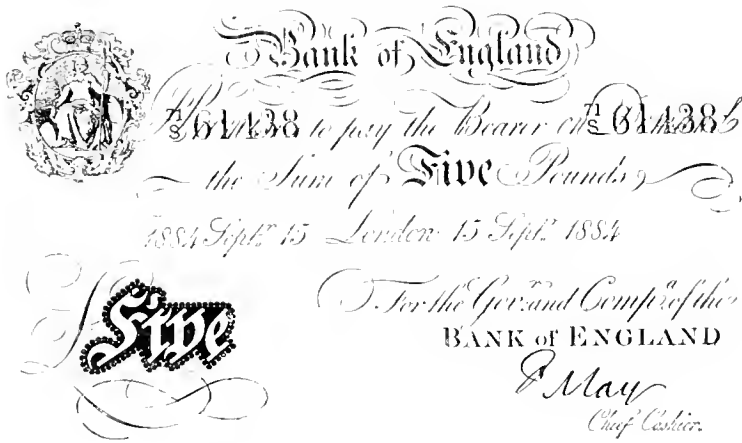 Bank of England
I Promise to pay the Bearer on Demand
71/S 61438 71/S 61438
the Sum of Five Pounds
1884 Septr 15 London 15 Septr 1884
For the Govr and Compa of the
BANK of ENGLAND
Five
F May
Chief Cashier.